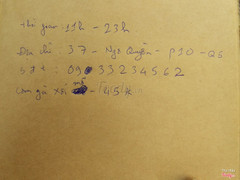 Thời gian: 11h - 23h
Địa chỉ: 37 - Ngô Quyền - P10 - Q5
SĐT: 0933234562
Cơm gà xối mỡ - 45k